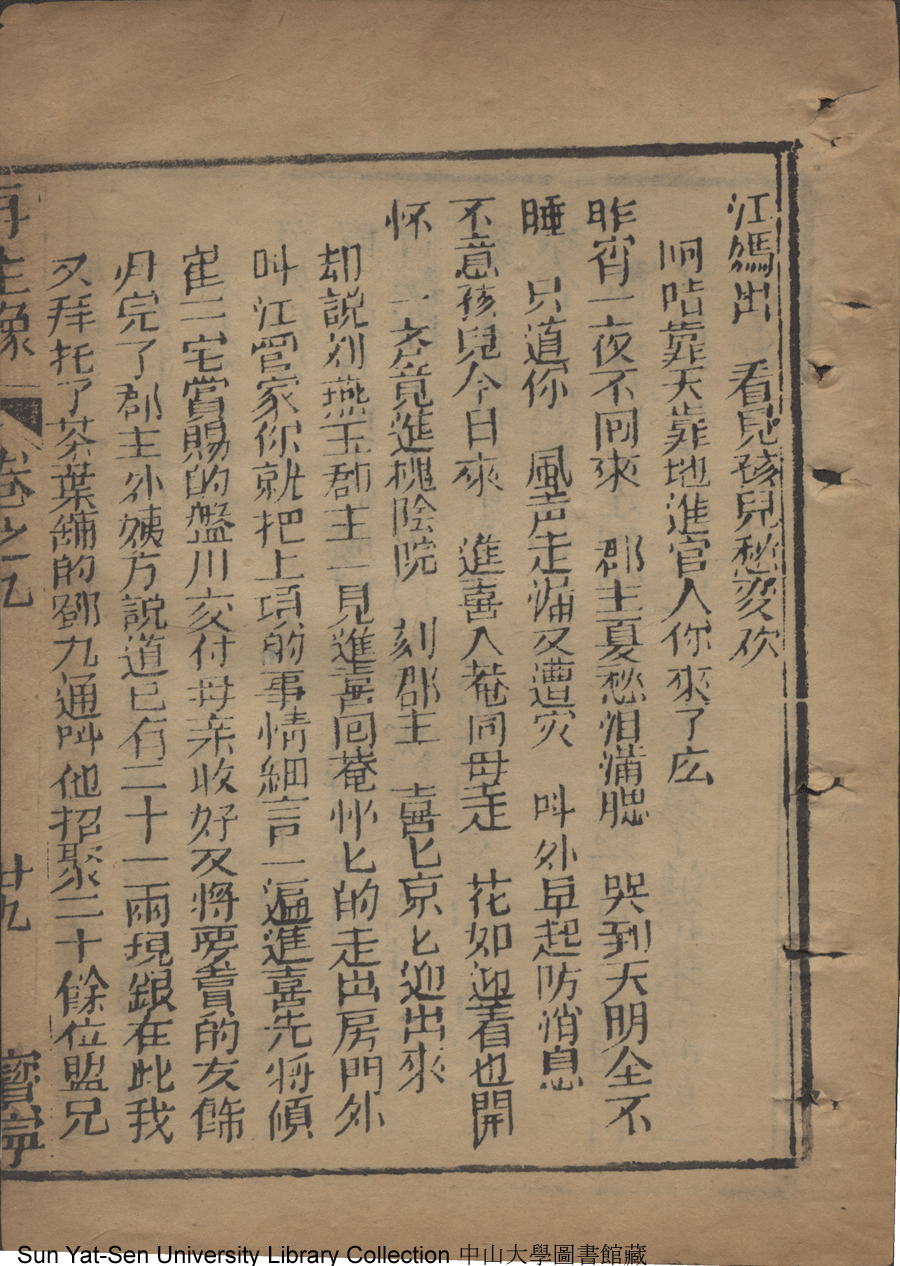 江媽出 看見孩兒愁变欢
啊咕靠天靠地進官人你來了庅
昨宵一夜不囬來 郡主夏愁泪滿腮 哭到天明全不
睡 只道你 風声走漏又遭灾 呌外早起防消息
不意孩兒今日來 進喜入菴同母走 花如迎着也開
怀 一齐竟進槐陰院 刘郡主 喜匕京匕迎出來
却說刘燕玉郡主一見進喜回菴怀匕的走出房門外
呌江管家你就把上項的事情細言一遍進喜先將傾
崔二宅賞賜的盤川交付母亲收好又將要賣的衣餙
丹完了郡主外姨方說道已有二十一兩現銀在此我
又拜托了茶葉鋪的鄧九通呌他招聚二十餘位盟兄
再生緣 卷之九 廿九 寳寧
Sun Yat-Sen University Library Collection 中山大學圖書館藏